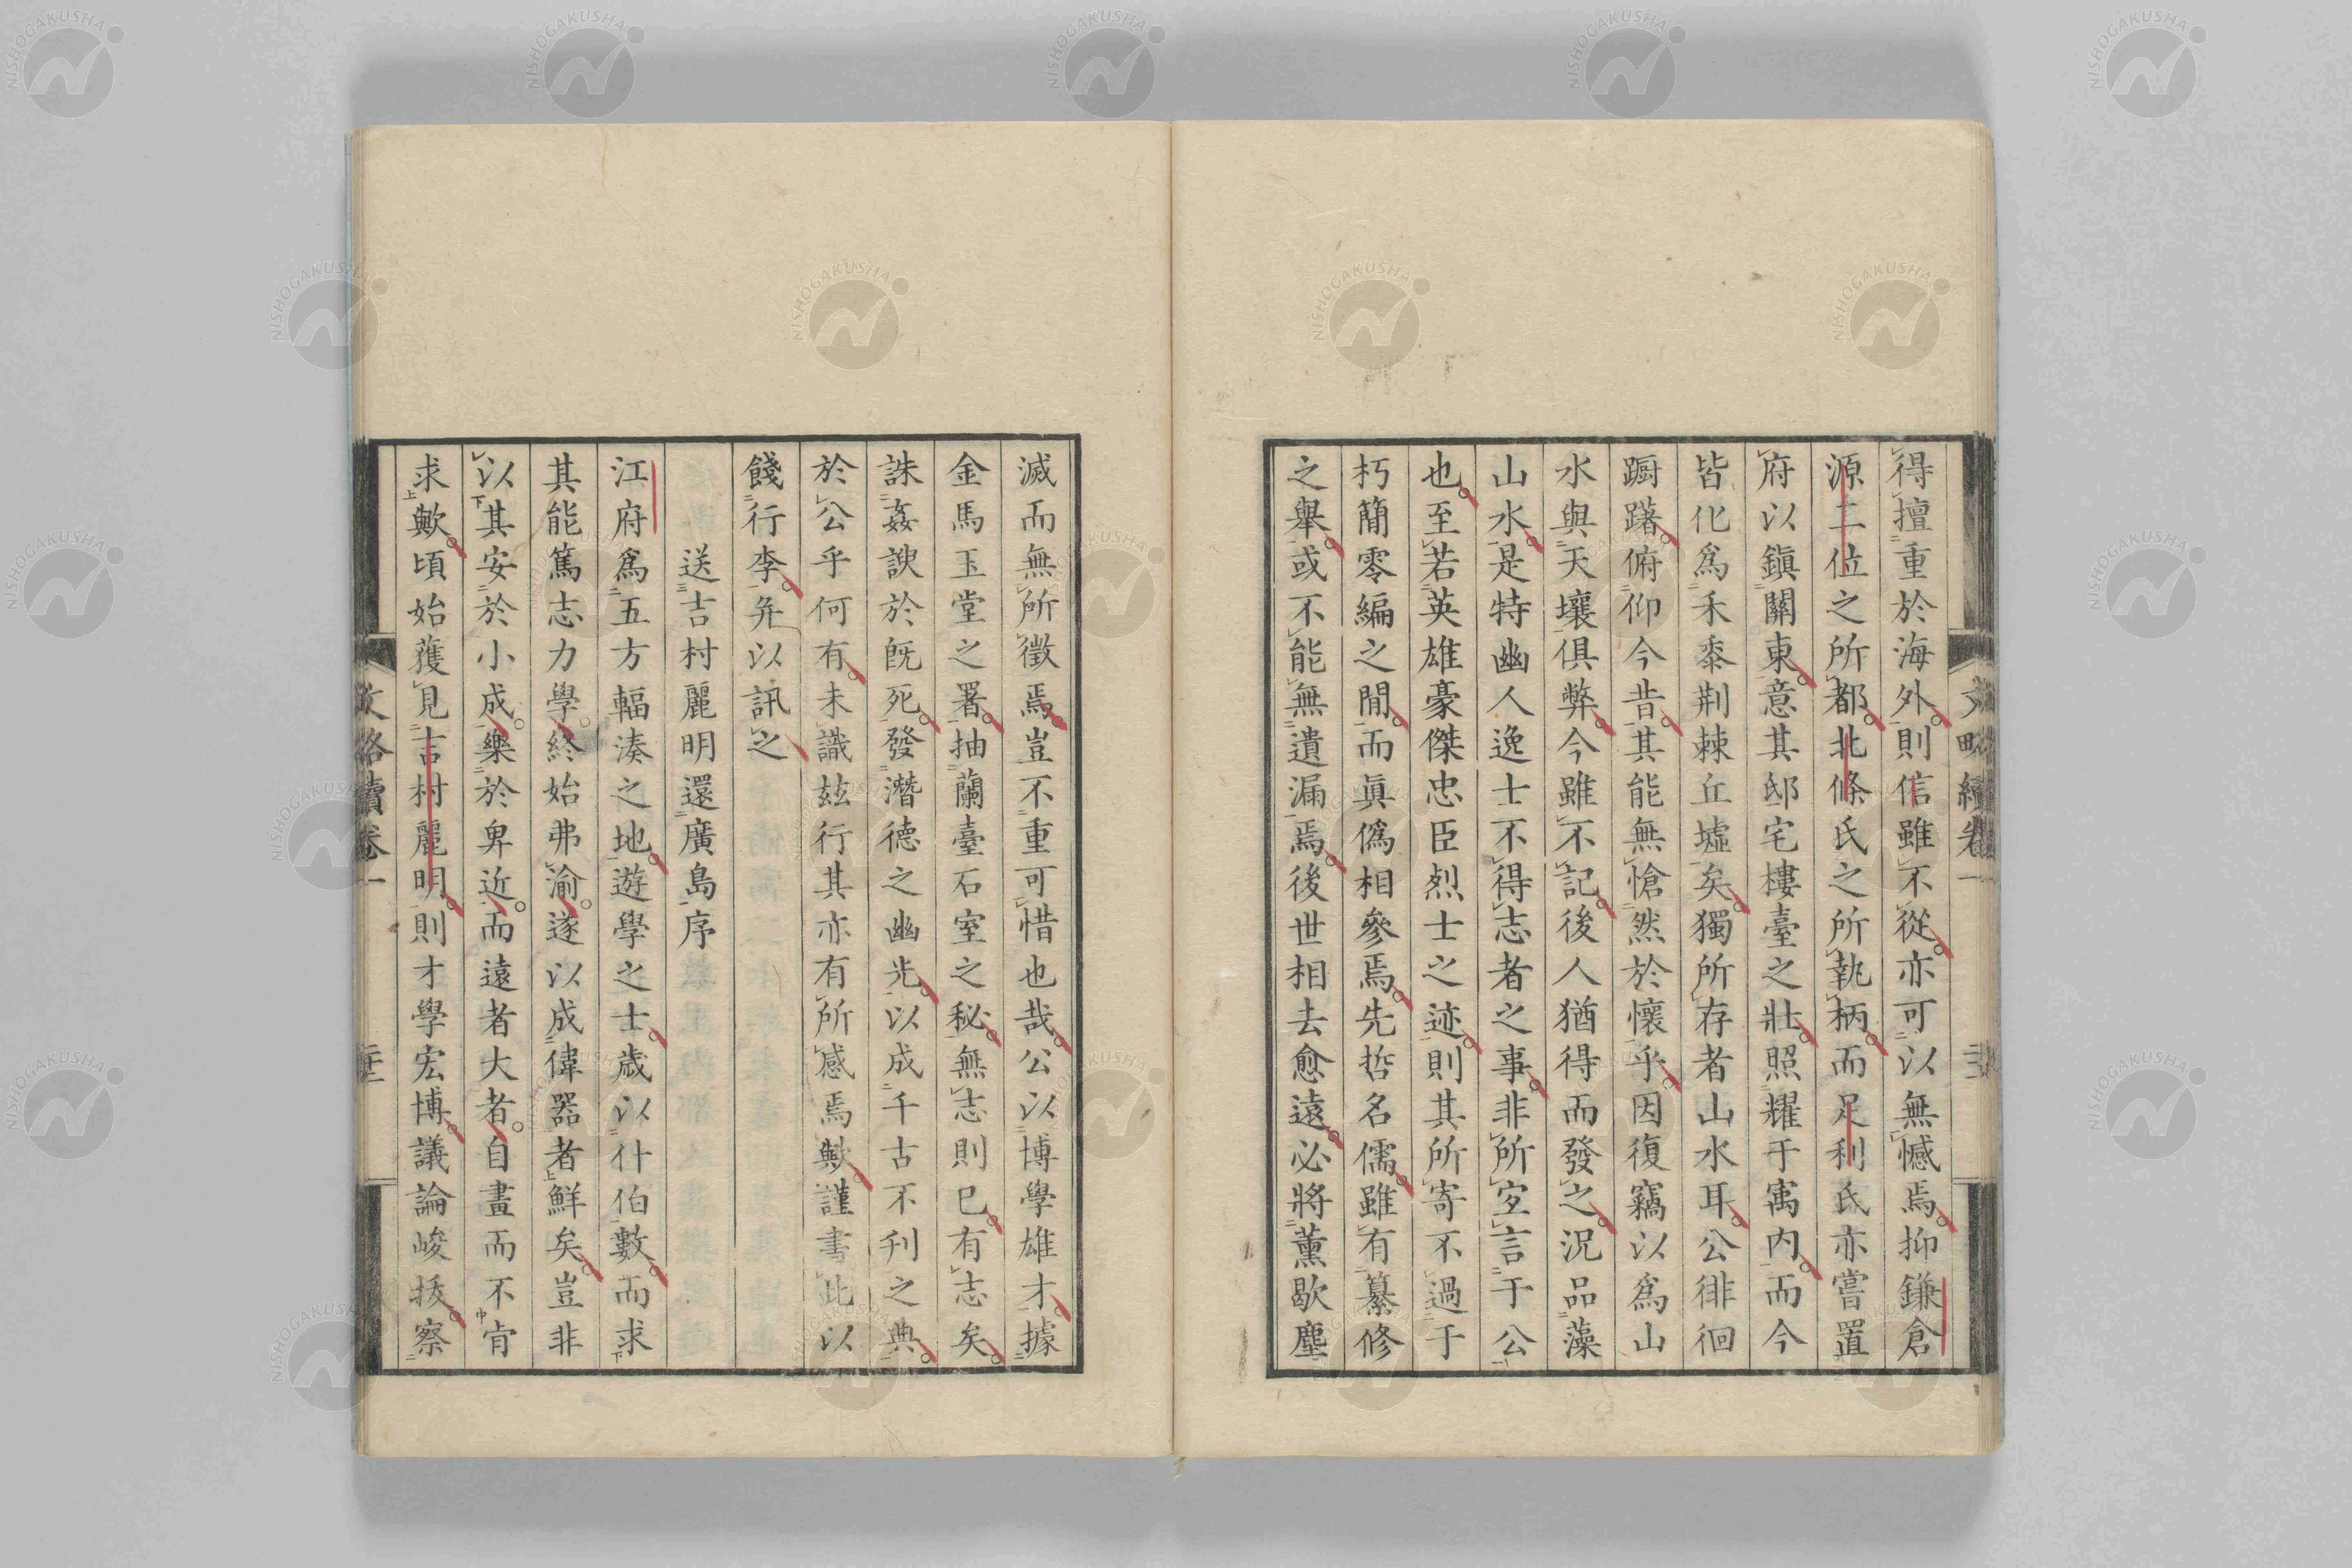 得擅重於海外則信雖不從亦可以無憾焉抑鎌倉
源二位之所都北條氏之所執柄而足利氏亦嘗置
府以鎭關東意其邸宅樓臺之壯照耀于寓內而今
皆化爲禾黍荆棘丘墟矣獨所存者山水耳公徘徊
蹰躇俯仰今昔其能無愴然於懷乎因復竊以爲山
水與天壤俱弊今雖不記後人猶得而發之況品藻
山水是特幽人逸士不得志者之事非所宜言于公
也至若英雄豪傑忠臣烈士之迹則其所寄不過于
朽簡零編之閒而眞僞相參焉先哲名儒雖有纂修
之舉或不能無遺漏焉後世相去愈遠必將薰歇塵
滅而無所徵焉豈不重可惜也哉公以博學雄才據
金馬玉堂之署抽蘭臺石室之秘無志則已有志矣
誅姦諛於旣死發潛德之幽光以成千古不刋之典
於公乎何有未識玆行其亦有所感焉歟謹書此以
餞行李弁以訊之
送吉村麗明還廣島序
江府爲五方輻湊之地遊學之士歲以什伯數而求
其能篤志力學終始弗渝遂以成偉器者鮮矣豈非
以其安於小成樂於卑近而遠者大者自畫而不肯
求歟頃始獲見吉村麗明則才學宏博議論峻拔察
文略續卷一
NISHOGAKUSHA